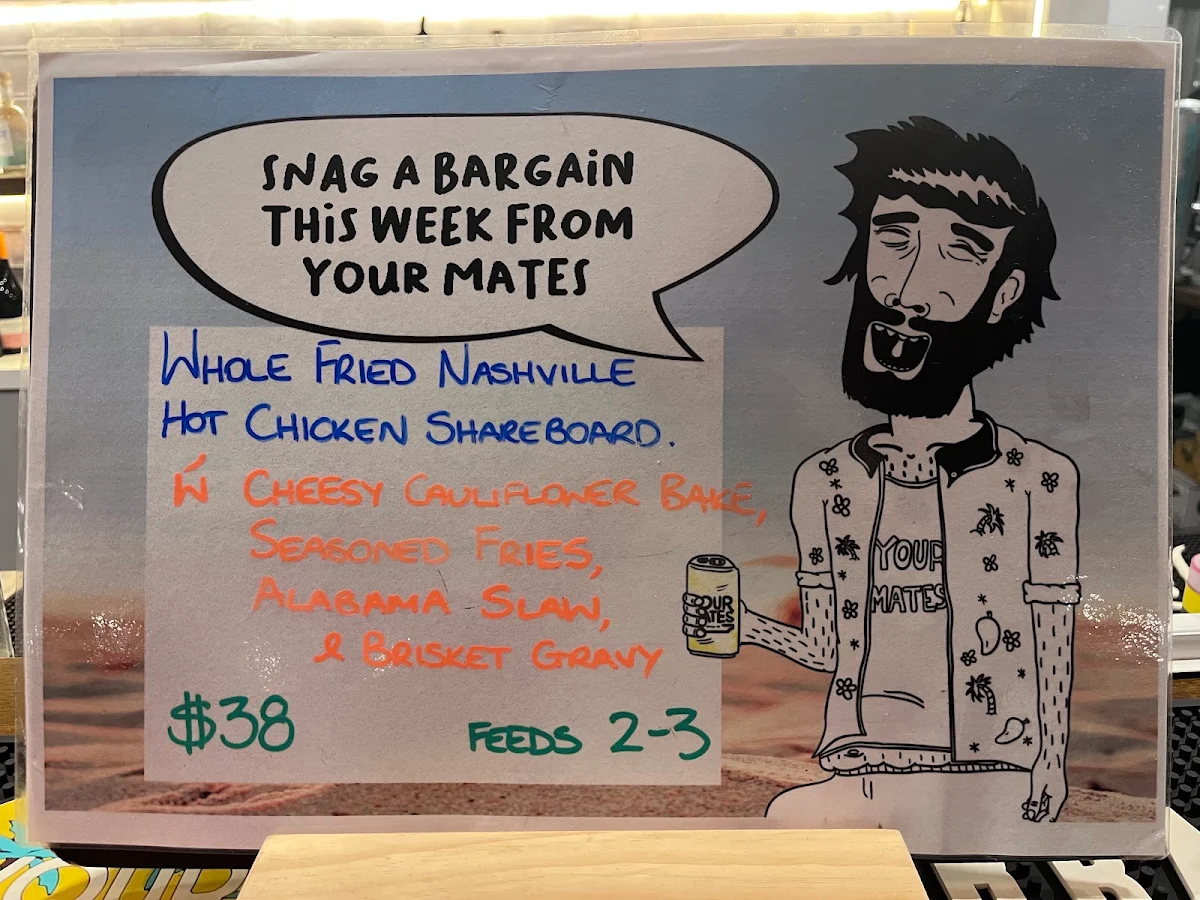 SNAG A BARGAiN
THiS WEEK FROM
YOUR MATES
WHOLE FRIED NASHVILLE
HOT CHICKEN SHAREBOARD.
w/ CHEESY CAULIFLOWER BAKE,
SEASONED FRIES,
ALABAMA SLAW,
& BRISKET GRAVY
$38 FEEDS 2-3
YOUR
MATES
OUR
ATES